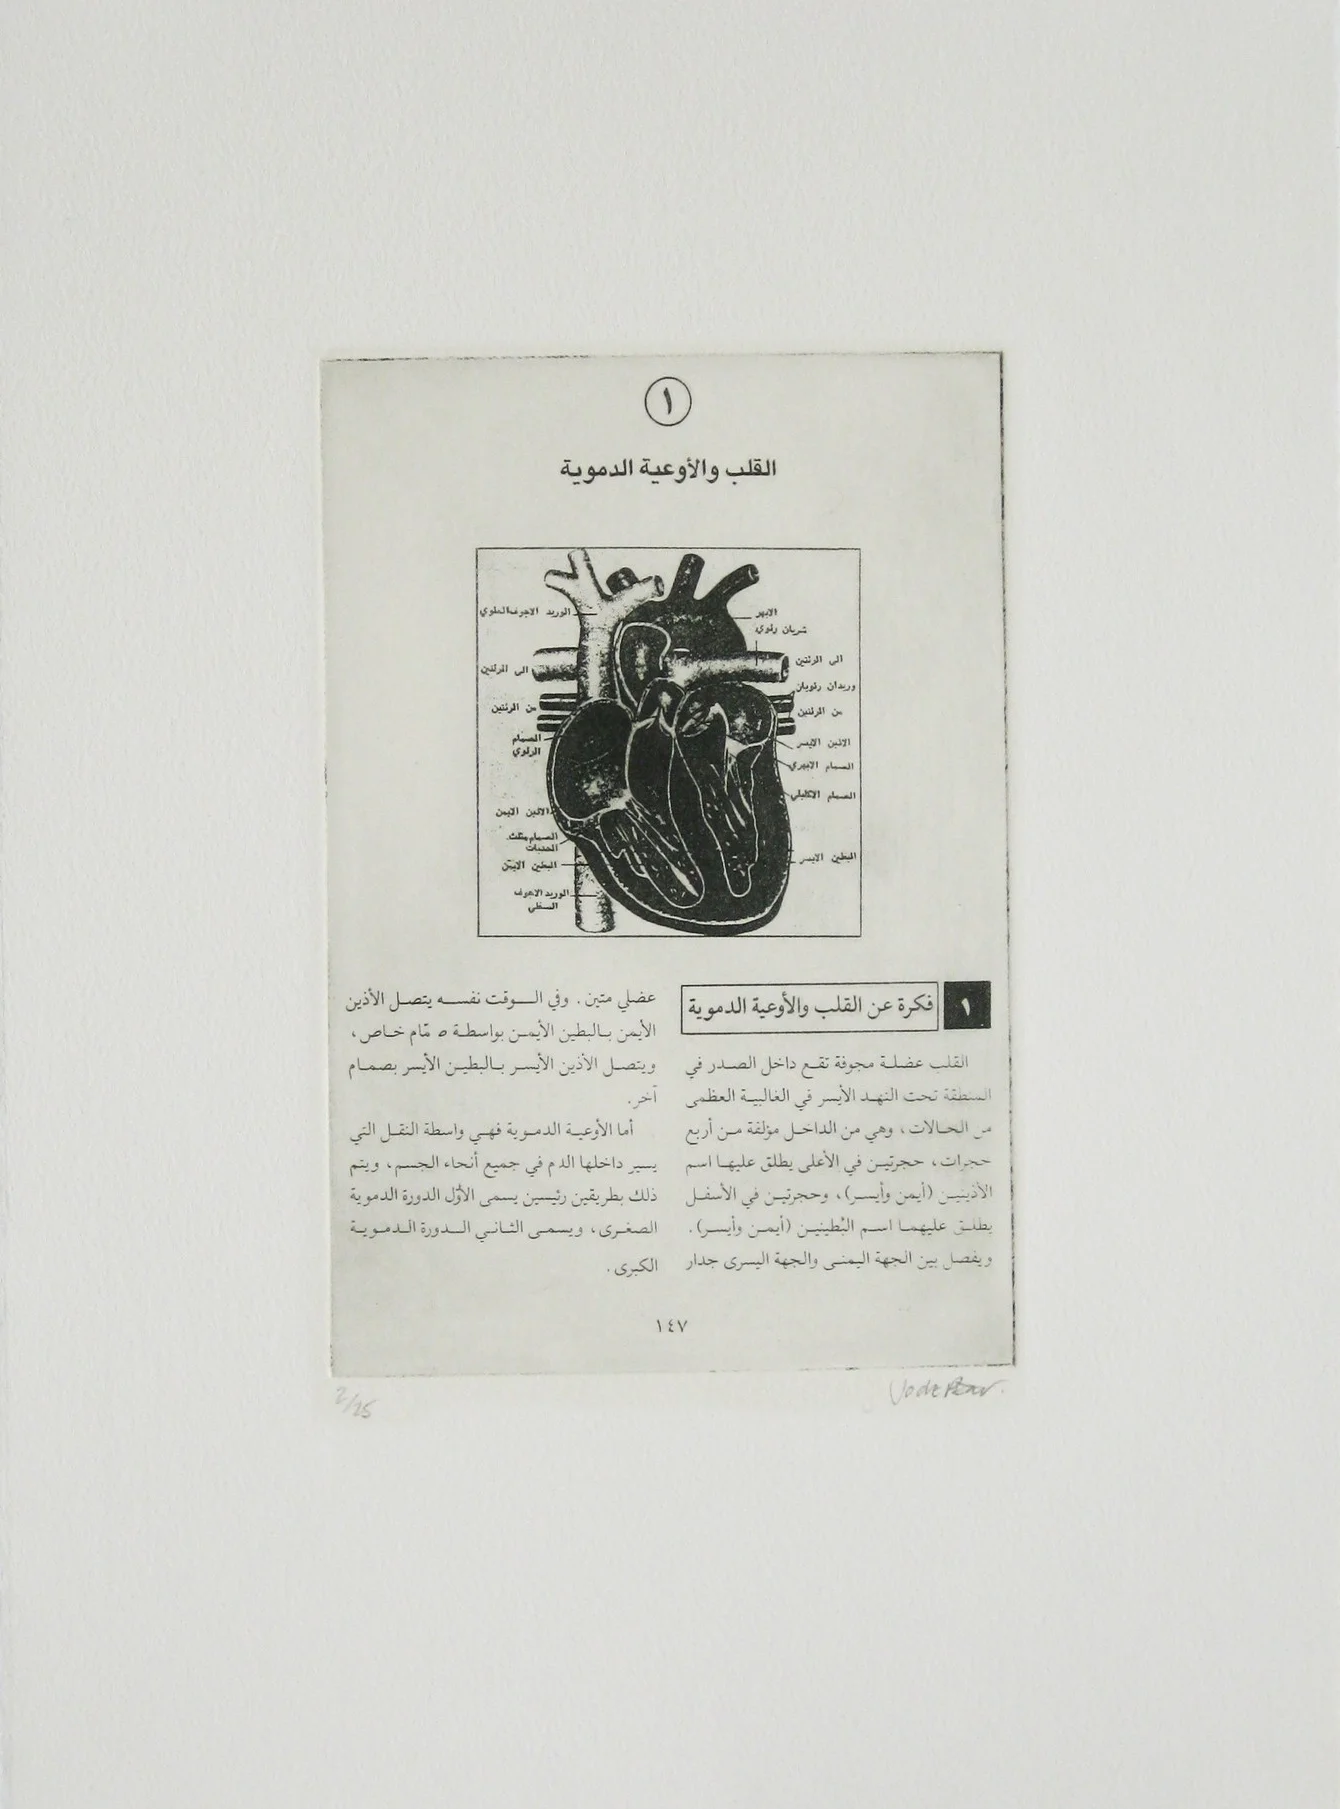 ١
القلب والأوعية الدموية
الوريد الاجوف العلوي
الى الرئتين
من الرئتين
الصمام
الرئوي
الاذين الايمن
الصمام مثلث
الحدبات
البطين الايمن
الوريد الاجوف
السفلي
الابهر
شريان رئوي
الى الرئتين
وريدان رئويان
من الرئتين
الاذين الايسر
الصمام الابهري
الصمام الاكليلي
البطين الايسر
١
فكرة عن القلب والأوعية الدموية
القلب عضلة مجوفة تقع داخل الصدر في
المنطقة تحت النهد الأيسر في الغالبية العظمى
من الحالات، وهي من الداخل مؤلفة من أربع
حجرات، حجرتين في الأعلى يطلق عليها اسم
الأذينين (أيمن وأيسر)، وحجرتين في الأسفل
يطلق عليهما اسم البُطينين (أيمن وأيسر).
ويفصل بين الجهة اليمنى والجهة اليسرى جدار
عضلي متين. وفي الوقت نفسه يتصل الأذين
الأيمن بالبطين الأيمن بواسطة صمّام خاص،
ويتصل الأذين الأيسر بالبطين الأيسر بصمام
آخر.
أما الأوعية الدموية فهي واسطة النقل التي
يسير داخلها الدم في جميع أنحاء الجسم، ويتم
ذلك بطريقين رئيسين يسمى الأوّل الدورة الدموية
الصغرى، ويسمى الثاني الدورة الدموية
الكبرى.
١٤٧
2/25